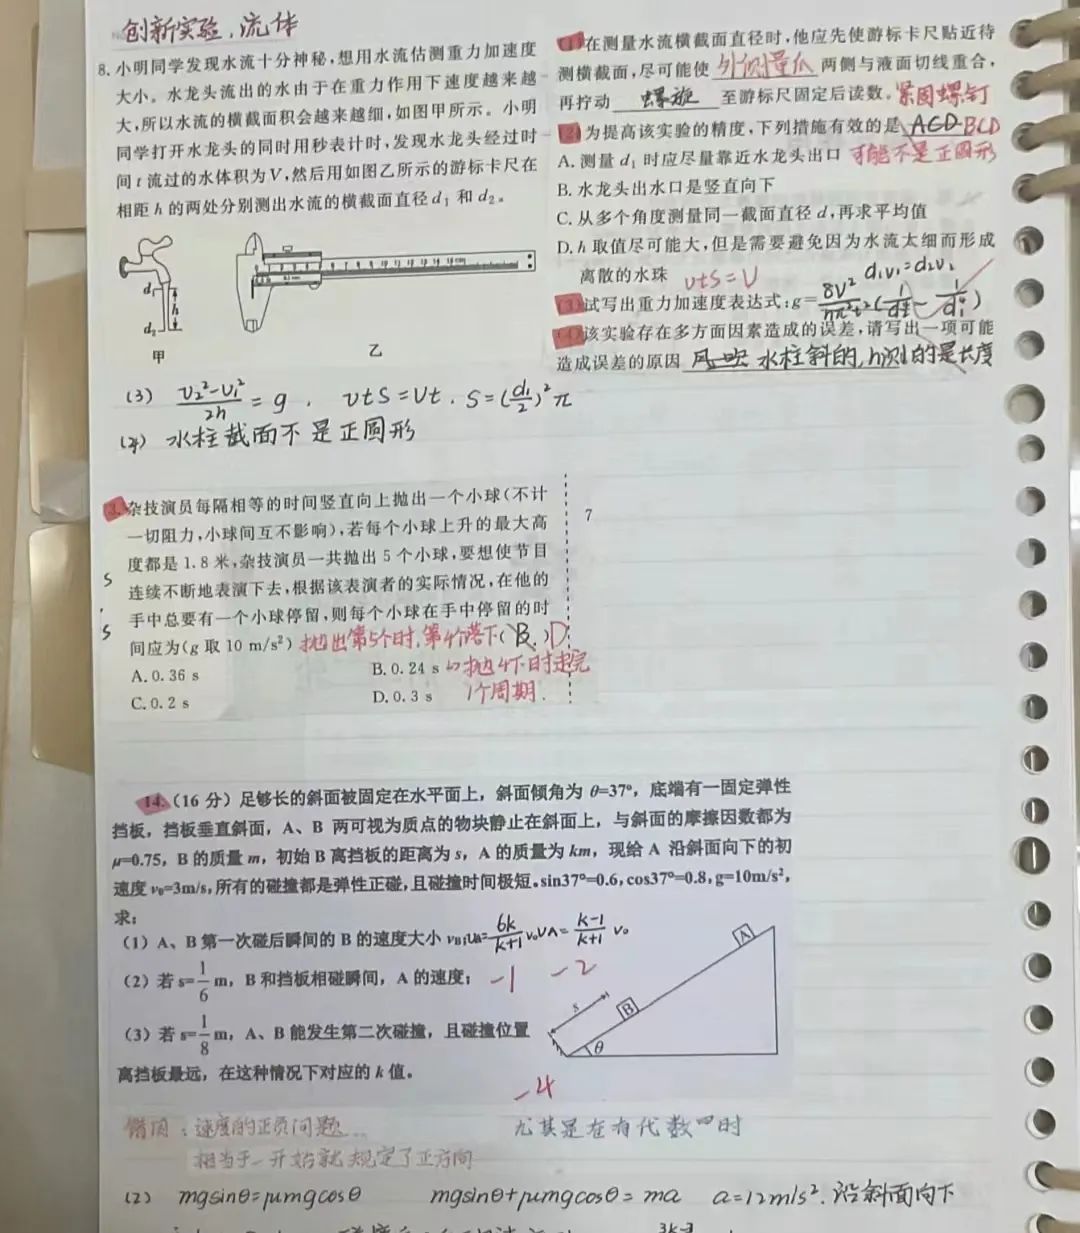 创新实验,流体
8.小明同学发现水流十分神秘,想用水流估测重力加速度
大小。水龙头流出的水由于在重力作用下速度越来越
大,所以水流的横截面积会越来越细,如图甲所示。小明
同学打开水龙头的同时用秒表计时,发现水龙头经过时
间 t 流过的水体积为V,然后用如图乙所示的游标卡尺在
相距 h 的两处分别测出水流的横截面直径 d₁ 和 d₂。
d₁
h
d₂
甲
乙
(1)在测量水流横截面直径时,他应先使游标卡尺贴近待
测横截面,尽可能使 外侧量爪 两侧与液面切线重合,
再拧动 螺旋 至游标尺固定后读数。紧固螺钉
(2)为提高该实验的精度,下列措施有效的是 ACD BCD
A.测量 d₁ 时应尽量靠近水龙头出口 可能不是正圆形
B.水龙头出水口是竖直向下
C.从多个角度测量同一截面直径 d,再求平均值
D.h 取值尽可能大,但是需要避免因为水流太细而形成
离散的水珠 vtS=V d₁v₁=d₂v₂
(3)试写出重力加速度表达式:g=8V²/hπ²t²(1/d₂⁴-1/d₁⁴)
(4)该实验存在多方面因素造成的误差,请写出一项可能
造成误差的原因 风吹 水柱斜的,h测的是长度
(3) (v₂²-v₁²)/2h=g, vtS=Vt. S=(d₁/2)²π
(4) 水柱截面不是正圆形
3.杂技演员每隔相等的时间竖直向上抛出一个小球(不计
一切阻力,小球间互不影响),若每个小球上升的最大高
度都是 1.8 米,杂技演员一共抛出 5 个小球,要想使节目
连续不断地表演下去,根据该表演者的实际情况,在他的
手中总要有一个小球停留,则每个小球在手中停留的时
间应为(g 取 10 m/s²) 抛出第5个时,第1个落下(B.)D
A. 0.36 s
B. 0.24 s 抛4个时走完
C. 0.2 s
D. 0.3 s 1个周期.
5
5
7
14.(16 分)足够长的斜面被固定在水平面上,斜面倾角为 θ=37°,底端有一固定弹性
挡板,挡板垂直斜面,A、B 两可视为质点的物块静止在斜面上,与斜面的摩擦因数都为
μ=0.75,B 的质量 m,初始 B 离挡板的距离为 s,A 的质量为 km,现给 A 沿斜面向下的初
速度 v₀=3m/s,所有的碰撞都是弹性正碰,且碰撞时间极短。sin37°=0.6,cos37°=0.8,g=10m/s²,
求:
(1)A、B 第一次碰后瞬间的 B 的速度大小 vB1 6k/k+1 v₀ vA=k-1/k+1 v₀
(2)若 s=1/6 m,B 和挡板相碰瞬间,A 的速度; -1 -2
(3)若 s=1/8 m,A、B 能发生第二次碰撞,且碰撞位置
离挡板最远,在这种情况下对应的 k 值。
-4
A
B
s
θ
错因:速度的正负问题 尤其是在有代数时
相当于一开始就规定了正方向
(2) mgsinθ=μmgcosθ mgsinθ+μmgcosθ=ma a=12m/s². 沿斜面向下